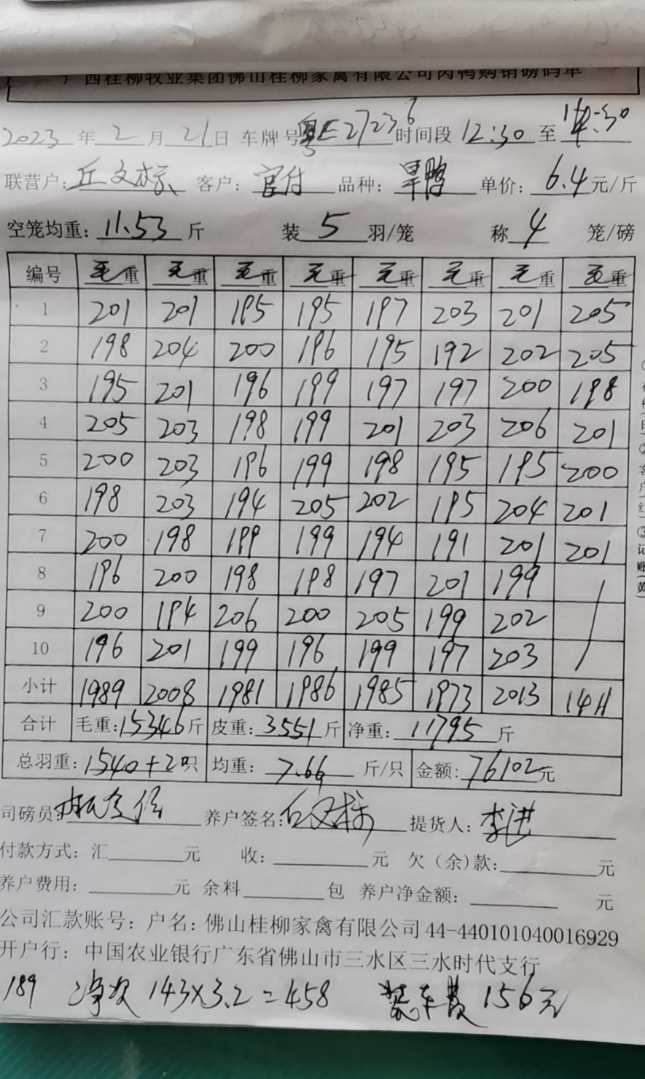 广西桂柳牧业集团佛山桂柳家禽有限公司肉鸭购销磅码单
2023 年 2 月 21 日 车牌号 粤E27236 时间段 12:30 至 14:30
联营户: 丘文标 客户: 官付 品种: 旱鸭 单价: 6.4 元/斤
空笼均重: 11.53 斤 装 5 羽/笼 称 4 笼/磅
编号 毛重 毛重 毛重 毛重 毛重 毛重 毛重 毛重
1 201 201 195 195 197 203 201 205
2 198 204 200 196 195 192 202 205
3 195 201 196 199 197 197 200 198
4 205 203 198 199 201 203 206 201
5 200 203 196 199 198 195 195 200
6 198 203 194 205 202 195 204 201
7 200 198 199 199 194 191 201 201
8 196 200 198 198 197 201 199
9 200 194 206 200 205 199 202
10 196 201 199 196 199 197 203
小计 1989 2008 1981 1986 1985 1973 2013 1411
合计 毛重: 15346 斤 皮重: 3551 斤 净重: 11795 斤
总羽重: 1540+2只 均重: 7.66 斤/只 金额: 76102 元
司磅员: 养户签名: 丘文标 提货人: 李进
付款方式: 汇 元 收: 元 欠(余)款: 元
养户费用: 元 余料 包 养户净金额: 元
公司汇款账号: 户名: 佛山桂柳家禽有限公司 44-440101040016929
开户行: 中国农业银行广东省佛山市三水区三水时代支行
189 净次 143×3.2=458 装车费 156元